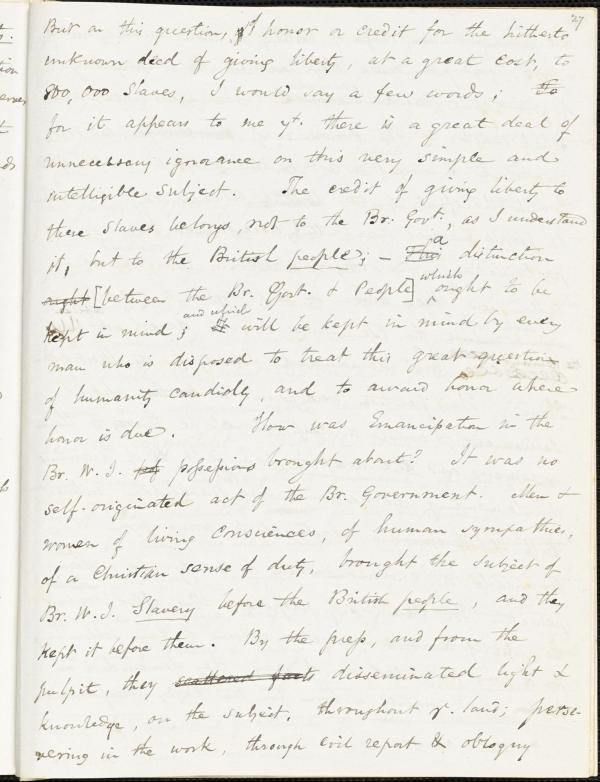 27
But on this question, of honor or credit for the hitherto
unknown deed of giving liberty, at a great cost, to
800,000 Slaves, I would say a few words; To
for it appears to me yt. there is a great deal of
unnecessary ignorance on this very simple and
intelligible subject. The credit of giving liberty to
these Slaves belongs, not to the Br. Govt., as I understand
it, but to the British people; – This a distinction
ought [between the Br. Govt. & People] which ought to be
kept in mind; and which It will be kept in mind by every
man who is disposed to treat this great question
of humanity candidly, and to award honor where
honor is due. How was Emancipation in the
Br. W. I. possessions brought about? It was no
self-originated act of the Br. Government. Men &
women of living consciences, of human sympathies,
of a Christian sense of duty, brought the subject of
Br. W. I. Slavery before the British people, and they
kept it before them. By the press, and from the
pulpit, they scattered facts disseminated light &
knowledge, on the subject, throughout ye. land; perse-
vering in the work, through evil report & obloquy